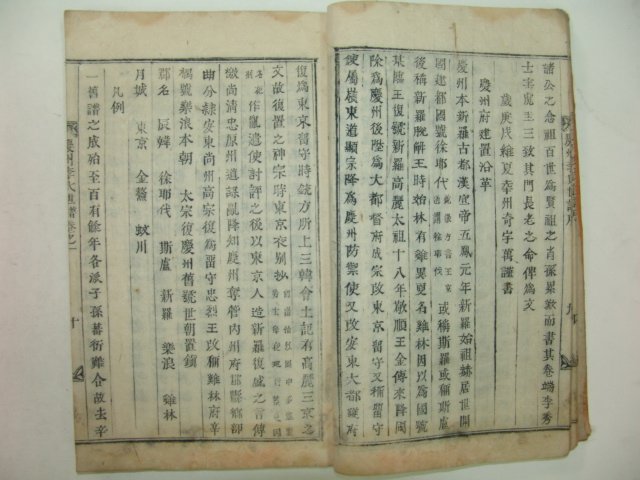 諸公之念祖百世爲賢祖之肖孫畢敬而書其卷端李秀
士宇彪主三致其門長老之命俾爲文
歲庚戌維夏幸州奇宇萬謹書
慶州府建置沿革
慶州本新羅古都漢宣帝五鳳元年新羅始祖赫居世開
國建都國號徐耶伐或稱斯羅或稱斯盧
後稱新羅脫解王時始林有雞異更名雞林因以爲國號
某臨王復號新羅高麗太祖十八年敬順王金傅來降國
除爲慶州後陞爲大都督府成宗改東京留守又稱留守
使屬嶺東道顯宗降爲慶州防禦使又改安東大都護府
慶州李氏世譜序
復爲東京留守時銳方所上三韓會土記有高麗三京之
文故復置之神宗時東京夜別抄
作亂遣使討評之後以東京人造新羅復盛之言傳
檄尚清忠原州道謀亂降知慶州奪管內州府郡縣鄉部
曲分隸安東尚州高宗復爲留守忠烈王改稱雞林府辛
禑號樂浪本朝太宗復慶州舊號世朝置鎮
郡名辰韓徐耶伐斯盧新羅樂浪雞林
月城東京金鰲蚊川
凡例
一舊譜之成殆至百有餘年各派子孫蕃衍難合故去辛
慶州李氏世譜卷之一
十